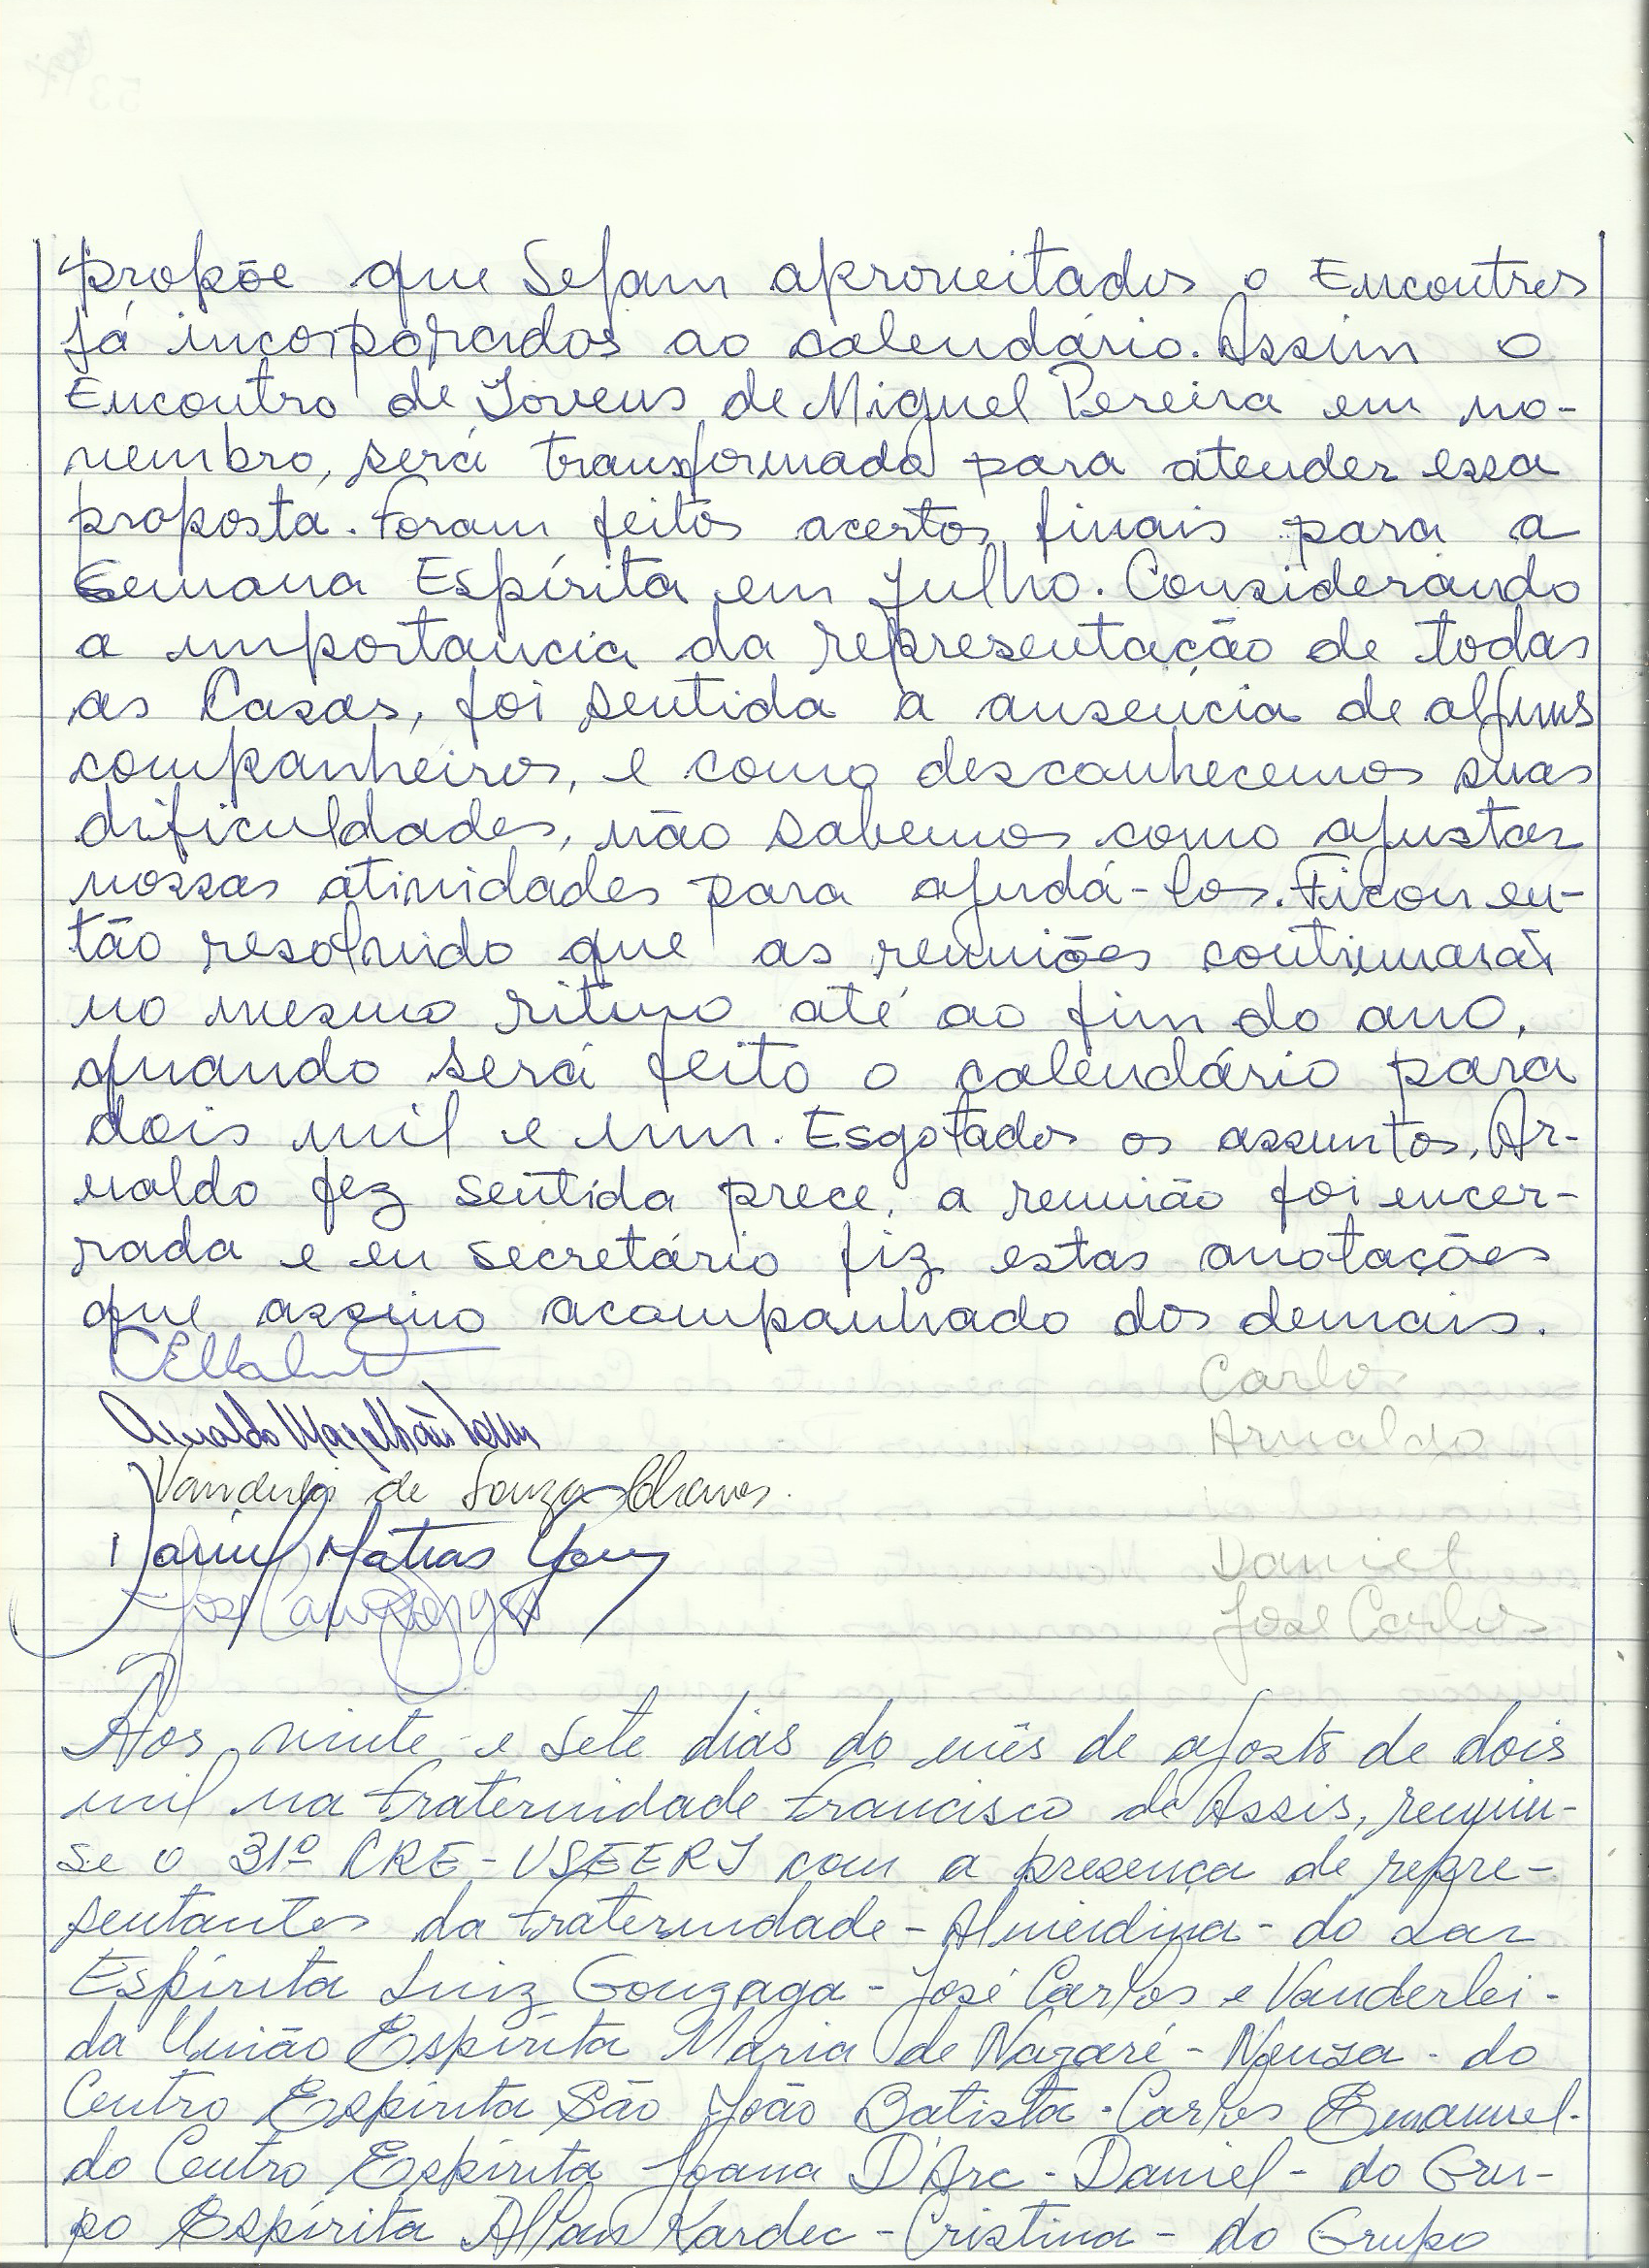 propõe que Sejam aproveitados o Encontros
já incorporados ao calendário. Assim o
Encontro de Jovens de Miguel Pereira em no-
vembro, será transformado para atender essa
proposta. Foram feitos acertos finais para a
Semana Espírita em Julho. Considerando
a importancia da representação de todas
as Casas, foi sentida a ausencia de alguns
companheiros, e como desconhecemos suas
dificuldades, não sabemos como ajustar
nossas atividades para ajudá-los. Ficou en-
tão resolvido que as reuniões continuarão
no mesmo ritmo até ao fim do ano,
quando será feito o calendário para
dois mil e um. Esgotados os assuntos, Ar-
naldo fez sentida prece, a reunião foi encer-
rada e eu secretário fiz estas anotações
que assino acompanhado dos demais.
Carlos
Arnaldo Magalhães
Arnaldo
Vanderlei de Souza Chaves.
Daniel Matias
Daniel
José Carlos
Aos vinte e sete dias do mês de agosto de dois
mil na Fraternidade Francisco de Assis, reuniu-
se o 31º CRE-USEERJ com a presença de repre-
sentantes da Fraternidade - Almerdina - do Lar
Espírita Luiz Gonzaga - José Carlos e Vanderlei -
da União Espírita Maria de Nazaré - Neusa - do
Centro Espírita São João Batista - Carlos Emanuel -
do Centro Espírita Joana D'Arc - Daniel - do Gru-
po Espírita Allan Kardec - Cristina - do Grupo